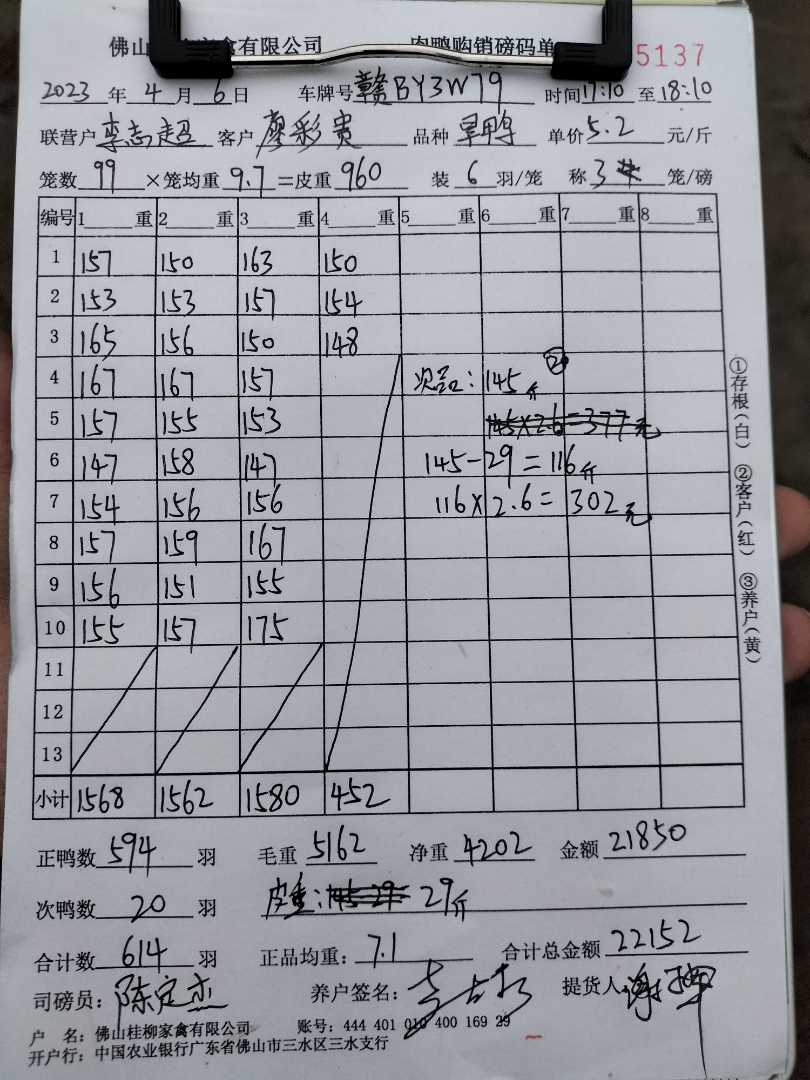 佛山 家禽有限公司 肉鸭购销磅码单 5137
2023年4月6日 车牌号赣BY3W79 时间17:10至18:10
联营户李志超 客户廖彩贵 品种旱鸭 单价5.2元/斤
笼数99×笼均重9.7=皮重960 装6羽/笼 称3笼/磅
编号 1 重 2 重 3 重 4 重 5 重 6 重 7 重 8 重
1 157 150 163 150
2 153 153 157 154
3 165 156 150 148
4 167 167 157 次品:145斤 20
5 157 155 153 145×2.6=377元
6 147 158 147 145-29=116斤
7 154 156 156 116×2.6=302元
8 157 159 167
9 156 151 155
10 155 157 175
11
12
13
小计 1568 1562 1580 452
①存根(白) ②客户(红) ③养户(黄)
正鸭数594羽 毛重5162 净重4202 金额21850
次鸭数20羽 皮重:145-29 29斤
合计数614羽 正品均重:7.1 合计总金额22152
司磅员:陈定杰 养户签名: 提货人谢
户 名:佛山桂柳家禽有限公司 账号:444 401 010 400 169 29
开户行:中国农业银行广东省佛山市三水区三水支行